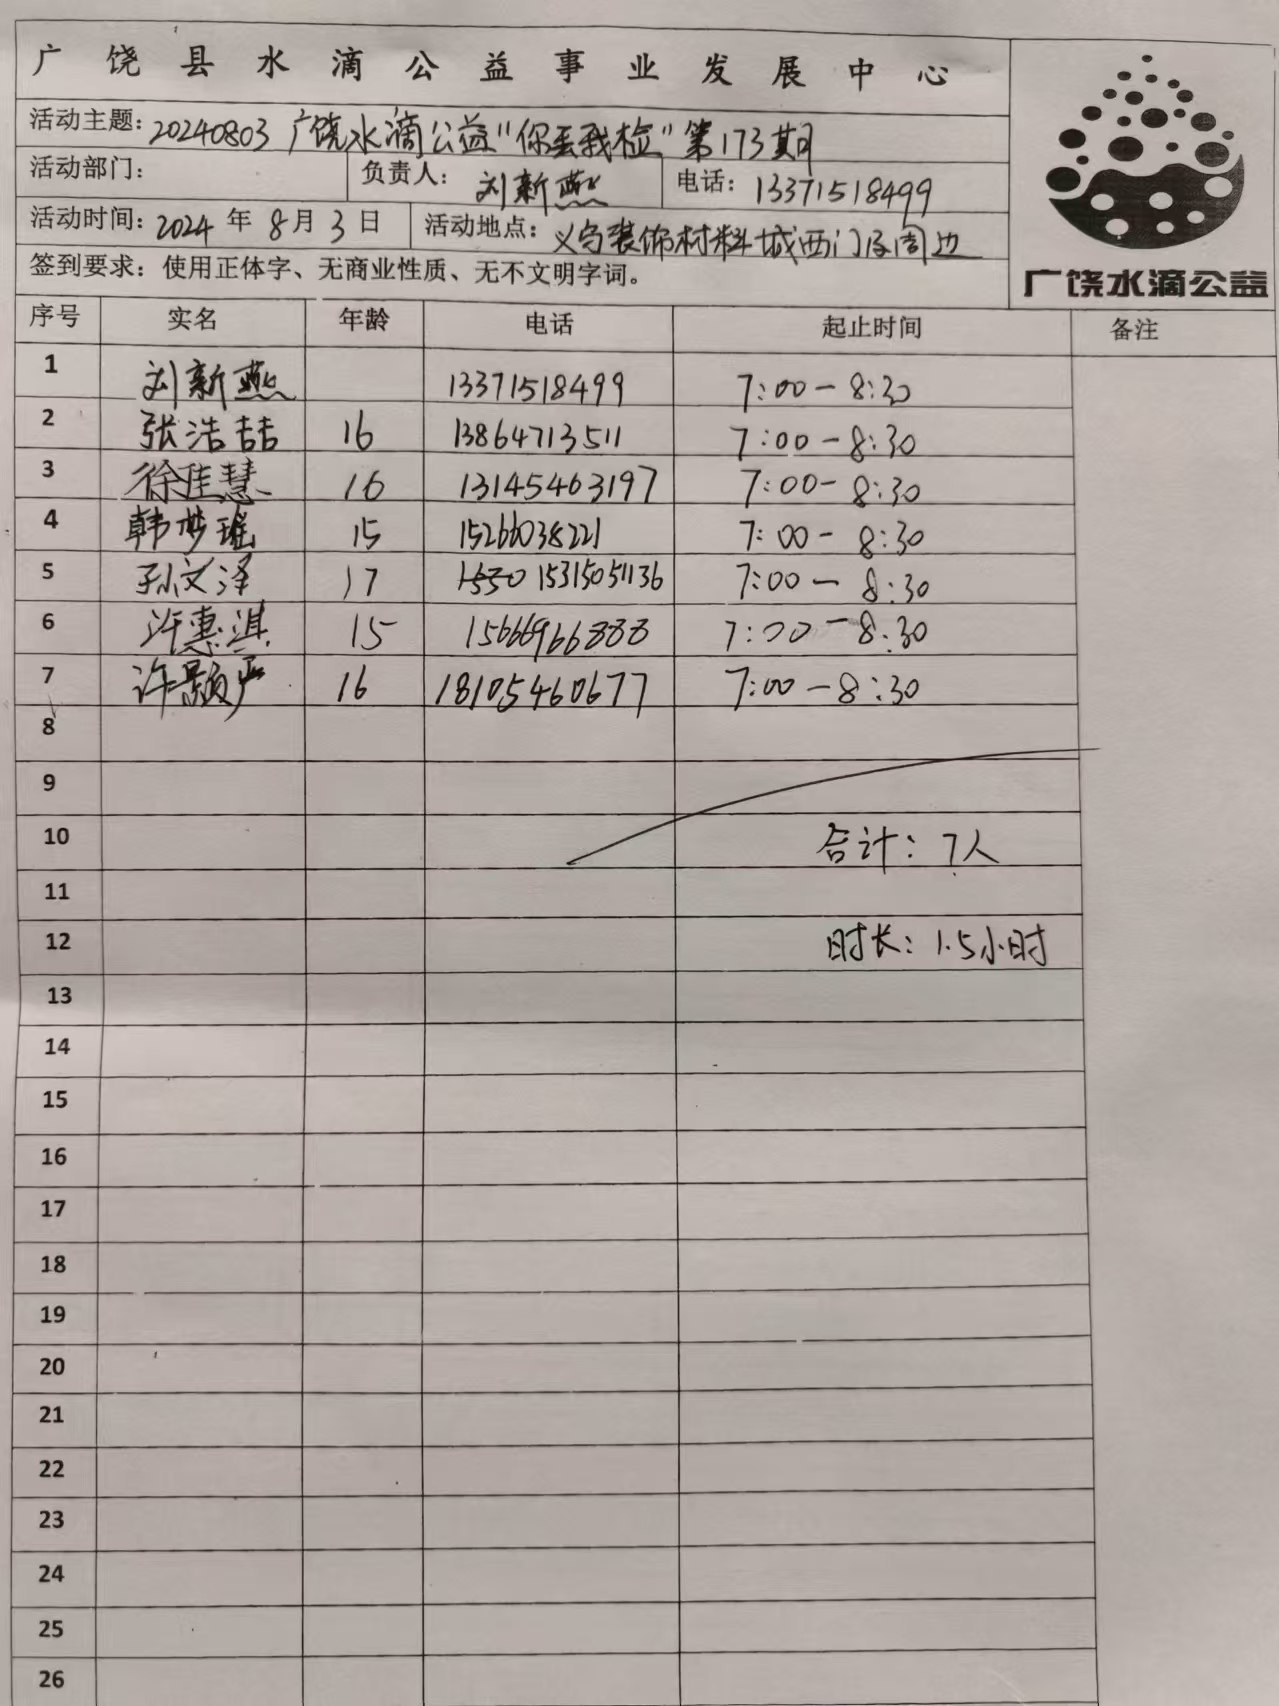 广饶县水滴公益事业发展中心
活动主题：20240803 广饶水滴公益“你丢我捡”第173期
活动部门： 负责人：刘新燕 电话：13371518499
活动时间：2024年8月3日 活动地点：义乌装饰材料城西门及周边
签到要求：使用正体字、无商业性质、无不文明字词。
广饶水滴公益
序号 实名 年龄 电话 起止时间 备注
1 刘新燕 13371518499 7:00-8:30
2 张浩喆 16 13864713511 7:00-8:30
3 徐佳慧 16 13145463197 7:00-8:30
4 韩梦瑶 15 15266038221 7:00-8:30
5 孙文泽 17 15315051136 7:00-8:30
6 许惠淇 15 15666966888 7:00-8:30
7 许颢严 16 18105460677 7:00-8:30
8
9
10 合计：7人
11
12 时长：1.5小时
13
14
15
16
17
18
19
20
21
22
23
24
25
26